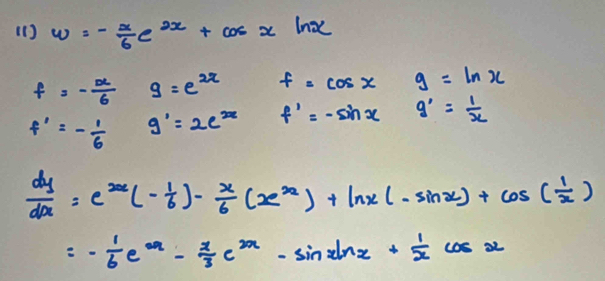 11) w = -x/6 e^2x + cos x lnx
f = -x/6 g = e^2x f = cos x g = ln x
f' = -1/6 g' = 2e^2x f' = -sin x g' = 1/x
dy/dx = e^2x (-1/6) - x/6 (2e^2x) + lnx (-sinx) + cos (1/x)
= -1/6 e^2x - x/3 e^2x - sin xlnx + 1/x cos x